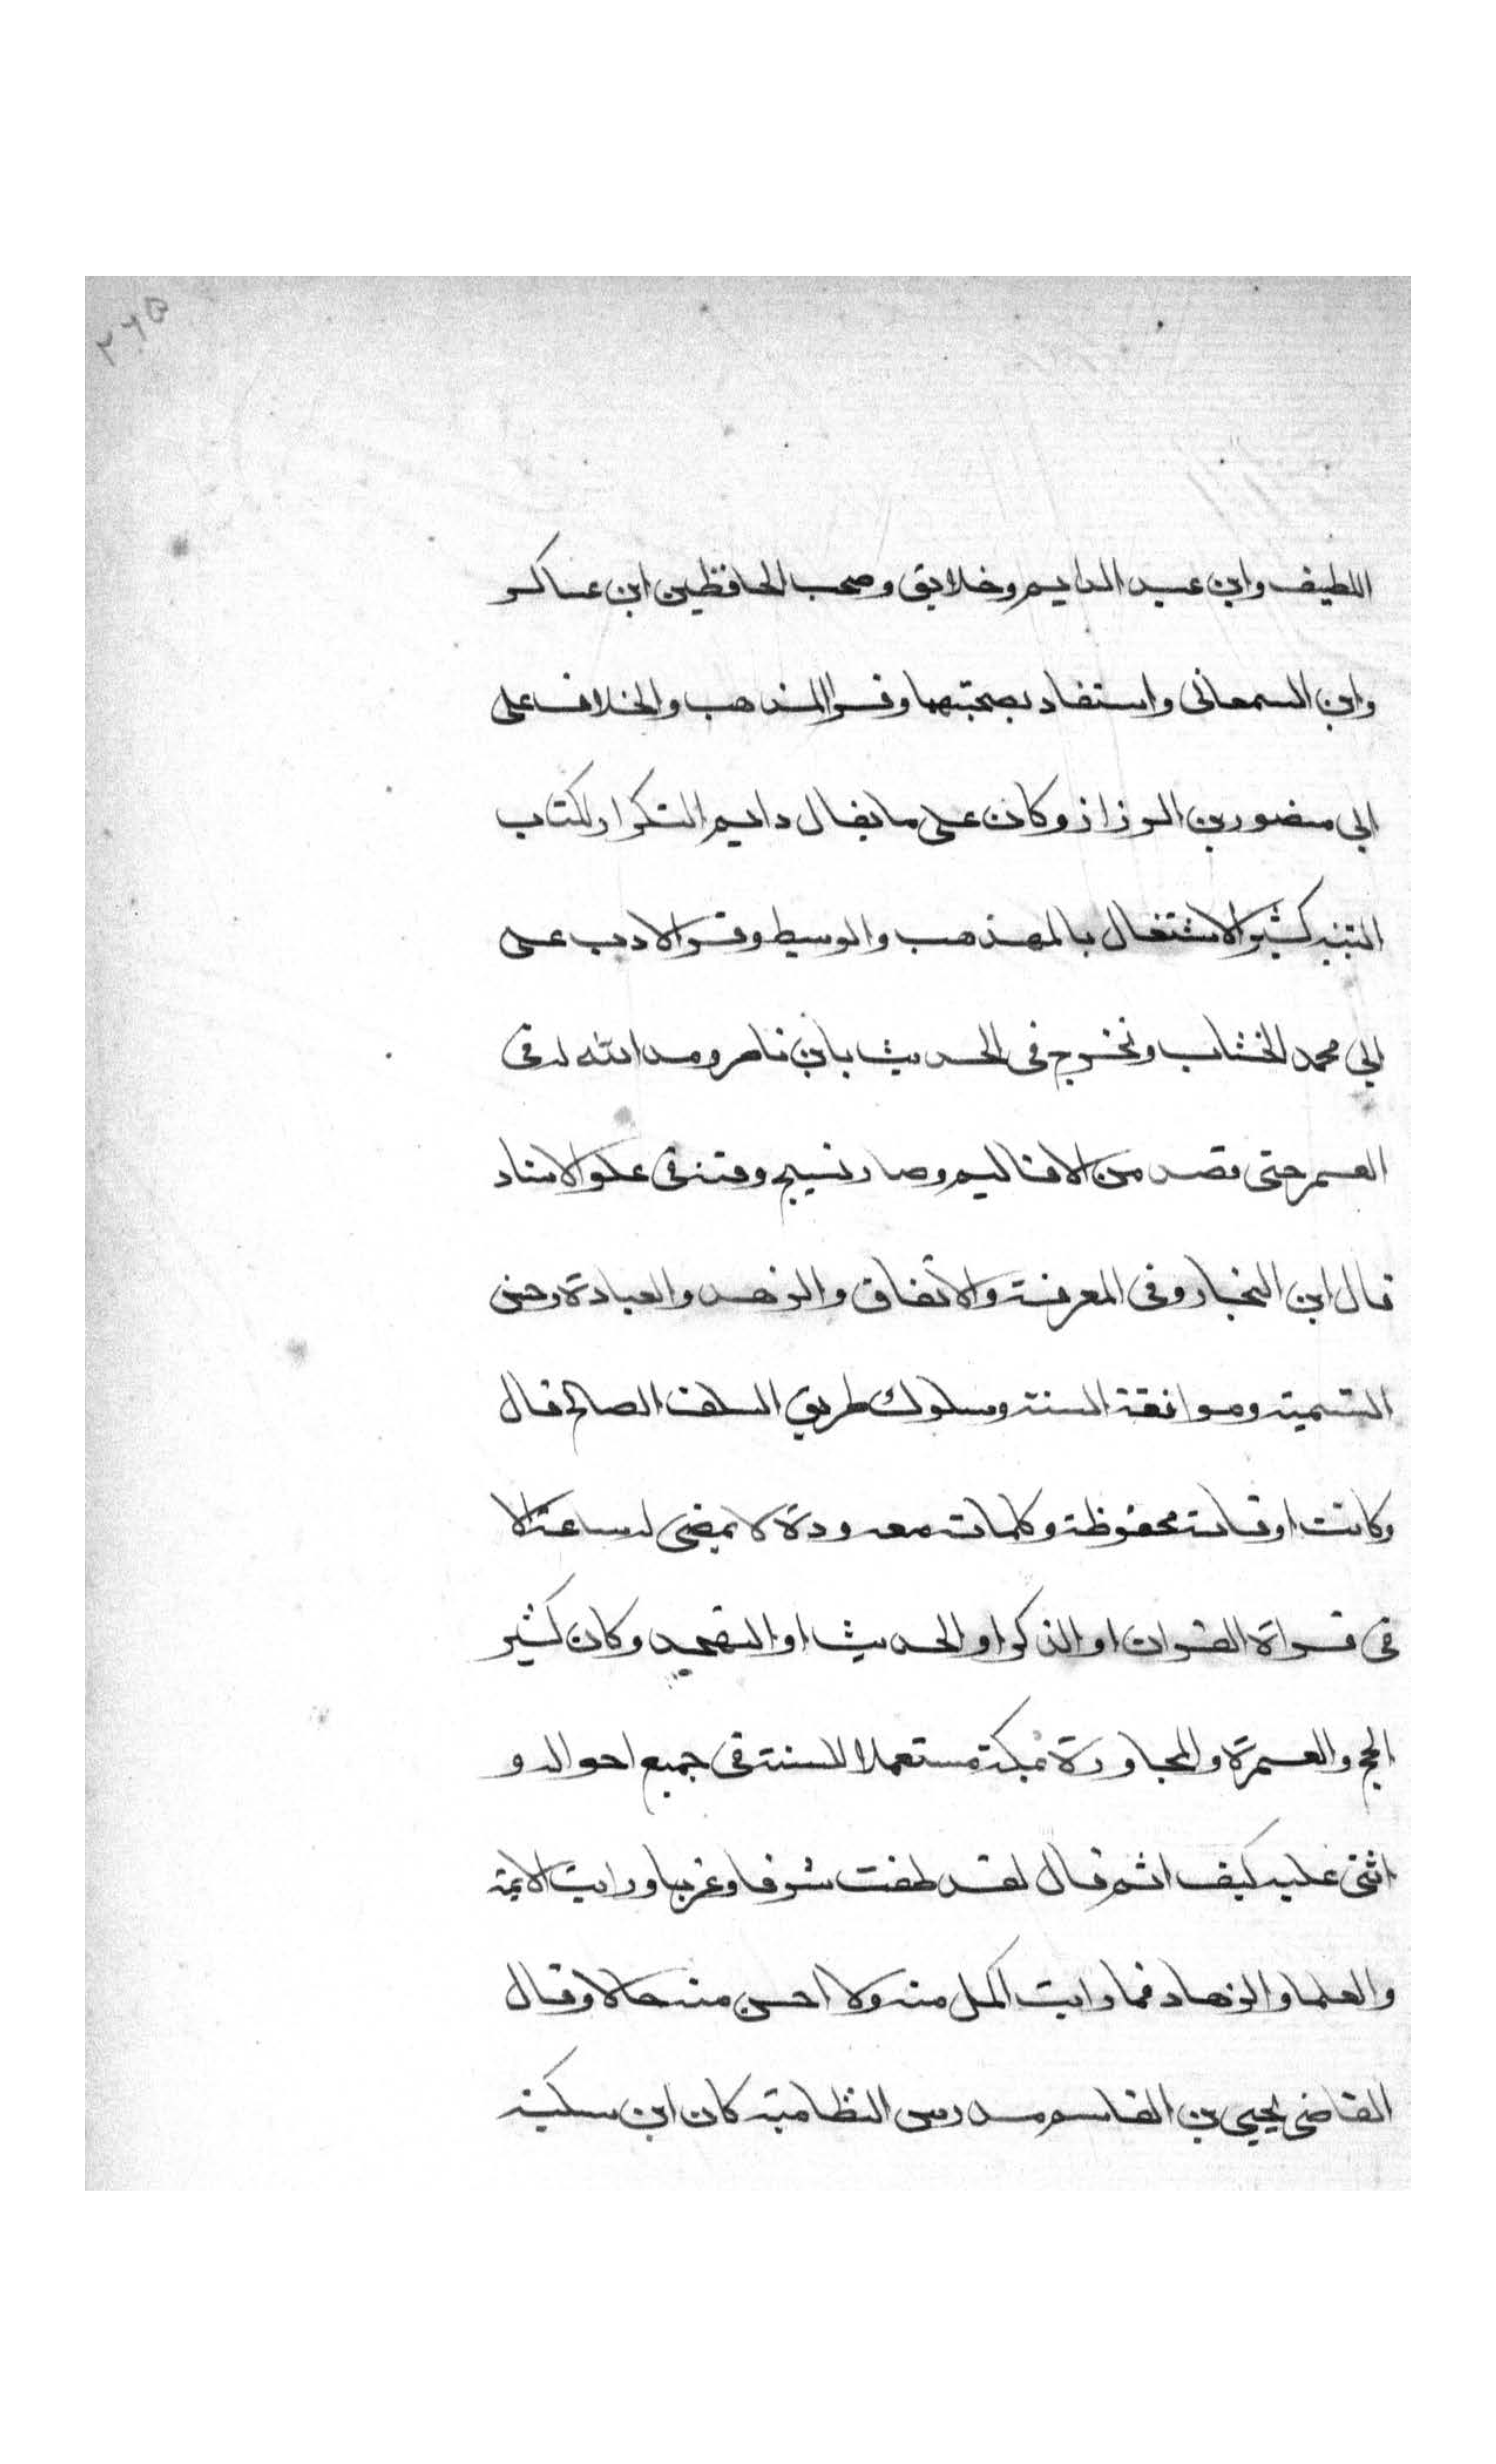 ٢٦٥
اللطيف وابن عبد الدايم وخلايق وصحب الحافظين ابن عساكر
وابن السمعاني واستفاد بصحبتهما وقرا المذهب والخلاف على
ابي منصور بن الرزاز وكان على ما يقال دايم التكرار لكتاب
التنبيه كثير الاشتغال بالمهذب والوسيط وقرا الادب على
ابي محمد الخشاب وتخرج في الحديث بابن ناصر ومد الله له في
العمر حتى قصد من الاقاليم وصار نسيج وقته في علو الاسناد
قال ابن النجار وفي المعرفة والاتقان والزهد والعبادة وحسن
السمت وموافقة السنة وسلوك طريق السلف الصالح قال
وكانت اوقاته محفوظة وكلماته معدودة لا يمضي له ساعة الا
في قراة القران او الذكر او الحديث او التهجد وكان كثير
الحج والعمرة والمجاورة بمكة مستعملا للسنة في جميع احواله و
اثنى عليه كيف اثم قال لقد طفت شرقا وغربا ورايت الايمة
والعلما والزهاد فما رايت اكمل منه ولا احسن منه حالا وقال
القاضي يحيى بن القاسم مدرس النظامية كان ابن سكينة